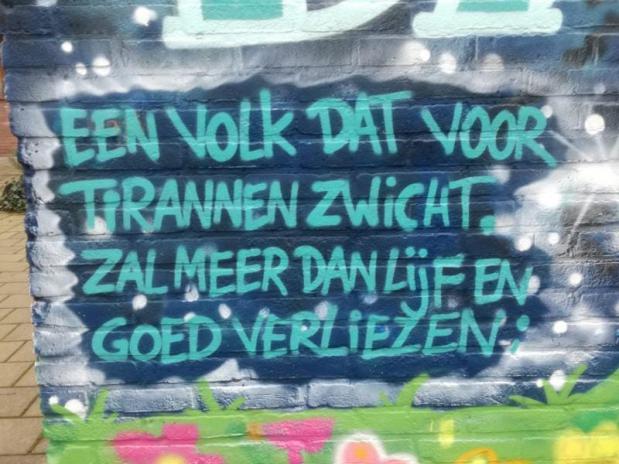 EEN VOLK DAT VOOR
TIRANNEN ZWICHT.
ZAL MEER DAN LIJF EN
GOED VERLIEZEN;